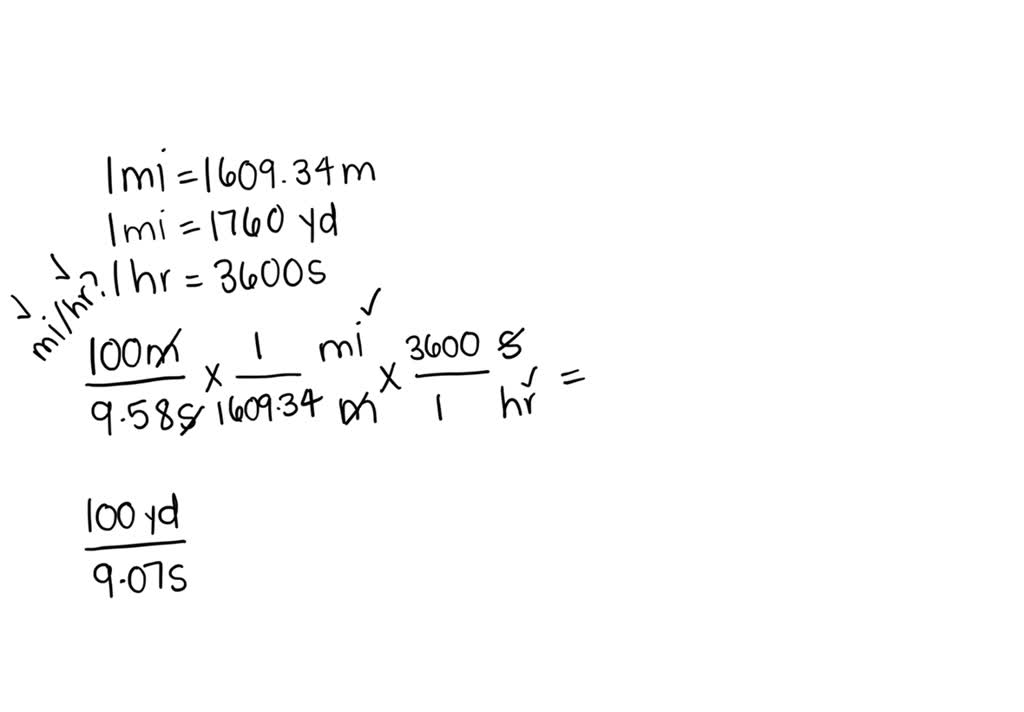 1mi = 1609.34m
1mi = 1760 yd
mi/hr? 1hr = 3600s
100m/9.58s × 1 mi/1609.34 m × 3600 s/1 hr =
100 yd/9.07s